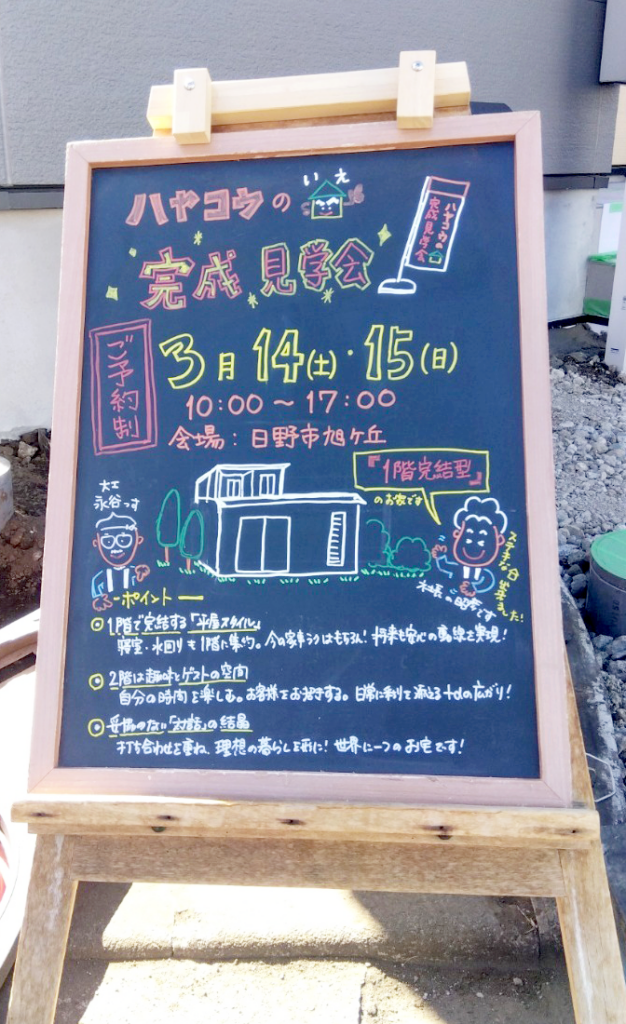 い え
ハヤコウの
ハヤコウの
完成見学会
完成 見学会
ご予約制
3月14(土)・15(日)
10:00〜17:00
会場:日野市旭ヶ丘
『1階完結型』
のお家です
大工
永谷っす
ステキな
ました!
です
ーポイントー
1階で完結する「平屋スタイル」
寝室・水回りも1階に集約。今の家事ラクはもちろん!将来も安心の動線を実現!
2階は趣味とゲストの空間
自分の時間を楽しむ。お客様をお招きする。日常に彩りを添える+αの広がり!
妥協のない「対話」の結晶
打ち合わせを重ね、理想の暮らしを形に!世界に一つのお宅です!